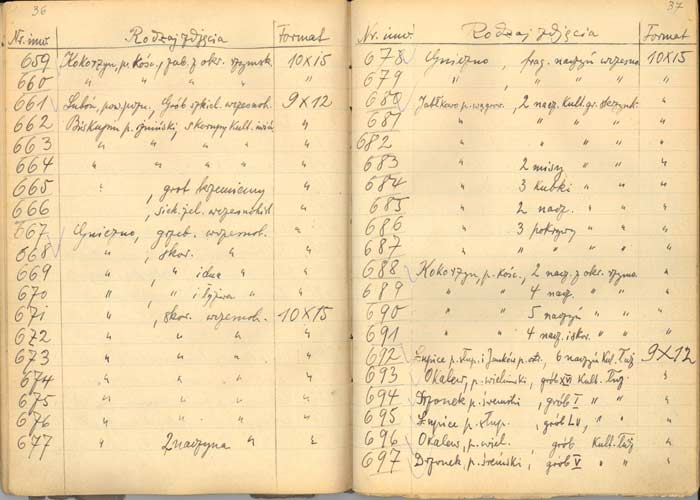 36
Nr. inw. Rodzaj zdjęcia Format
659 Kokorzyn, p. Kośc., zab. z okr. rzymsk. 10X15
660 " " " " " "
661 Luboń, pow. pozn., Grób szkiel. wczesnoh. 9X12
662 Biskupin p. żniński, skorupy Kult. "
663 " " " " "
664 " " " " "
665 " , grot krzemienny "
666 " , siek. żel. wczesnohist. "
667 Gniezno, grzeb. wczesnoh. "
668 " , skor. " "
669 " , " i dna " "
670 " , " i łyżwa " "
671 " , skor. wczesnoh. 10X15
672 " " " "
673 " " " "
674 " " " "
675 " " " "
676 " " " "
677 " 2 naczynia " "
37
Nr. inw. Rodzaj zdjęcia Format
678 Gniezno, frag. naczyń wczesno 10X15
679 " , " " " "
680 Jabłkowo p. wągrow., 2 nacz. Kult. gr. skrzynk. "
681 " " " " "
682 " " " " "
683 " 2 misy " " "
684 " 3 kubki " " "
685 " 2 nacz. " " "
686 " 3 pokrywy " " "
687 " " " " "
688 Kokorzyn, p. Kośc., 2 nacz. z okr. rzyms. "
689 " " 4 nacz. " " "
690 " " 5 naczyń " " "
691 " " 4 nacz. i skor. " " "
692 Słupice p. Słup. i Janków p. , 6 naczyń Kul. Łuż. 9X12
693 Okalew, p. wieluński, grób XVI Kult. Łuż. "
694 Drzonek p. śremski, grób I " " "
695 Słupice p. Słup. grób LV, " " "
696 Okalew, p. wiel., grób Kult. Łuż "
697 Drzonek, p. śremski, grób V " " "